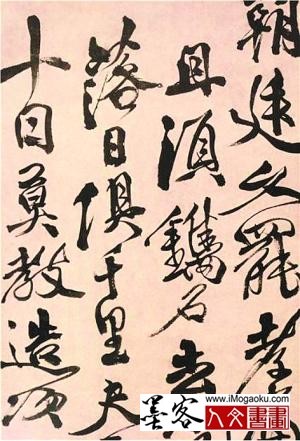 朝廷久罷
且須鐫
落日俱千里
十日莫教造次
墨客
www.iMogaoku.com
人文書畫